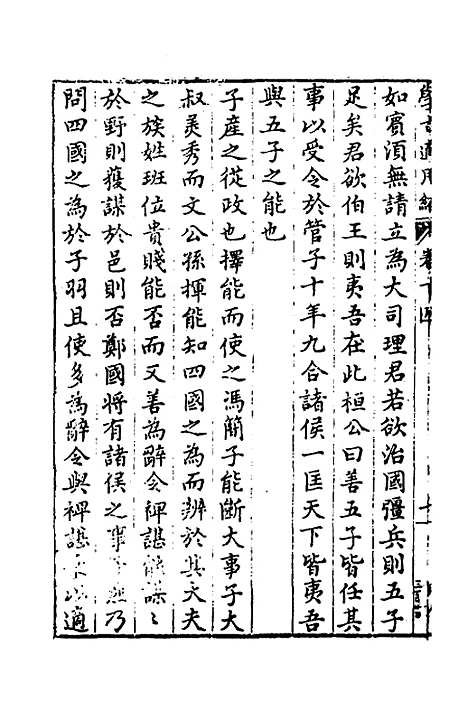 學古適用編 卷十四
如賓湏無請立為大司理君若欲治國彊兵則五子
足矣君欲伯王則夷吾在此桓公曰善五子皆任其
事以受令於管子十年九合諸侯一匡天下皆夷吾
與五子之能也
子產之從政也擇能而使之馮簡子能斷大事子大
叔美秀而文公孫揮能知四國之為而辨於其大夫
之族姓班位貴賤能否而又善為辭令裨諶能謀謀
於野則獲謀於邑則否鄭國將有諸侯之事子產乃
問四國之為於子羽且使多為辭令與裨諶乘以適